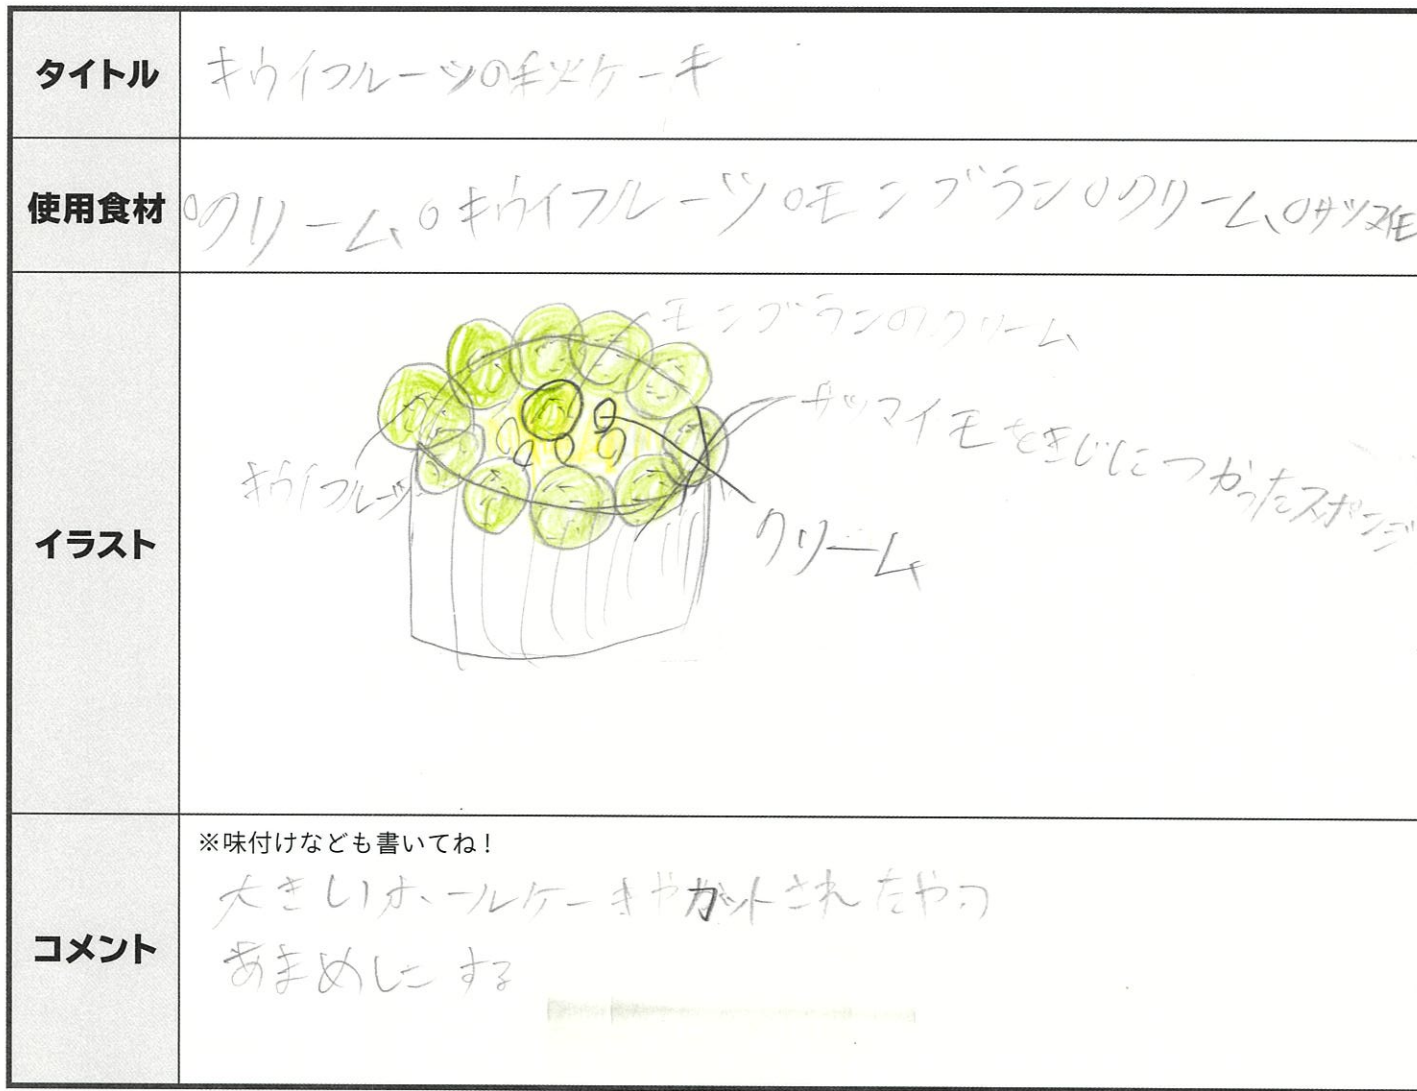 タイトル
キウイフルーツの秋ケーキ
使用食材
○クリーム○キウイフルーツ○モンブラン○クリーム○サツマイモ
イラスト
モンブランのクリーム
サツマイモをきじにつかったスポンジ
キウイフルーツ
クリーム
コメント
※味付けなども書いてね!
大きいホールケーキやカットされたやつ
あまめにする